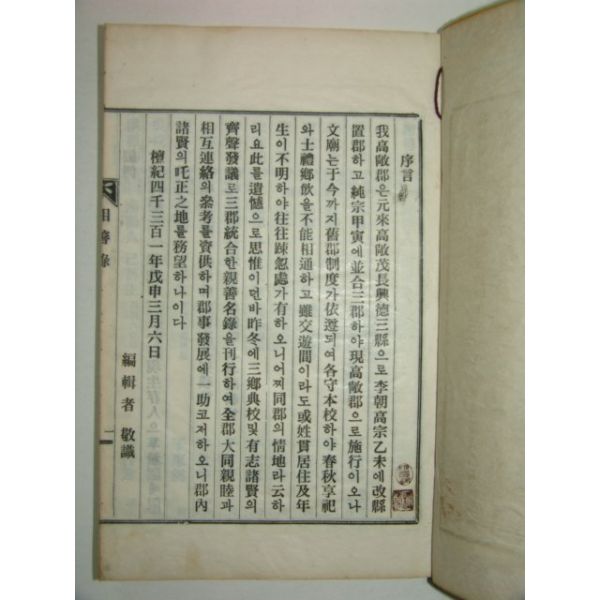 序言
我高敞郡은元來高敞茂長興德三縣으로李朝高宗乙未에改縣
置郡하고純宗甲寅에並合三郡하야現高敞郡으로施行이오나
文廟는于今까지舊郡制度가依遵되여各守本校하야春秋享祀
와士禮鄕飮을不能相通하고雖交遊間이라도或姓貫居住及年
生이不明하야往往踈忽處가有하오니어찌同郡의情地라云하
리요此를遺憾으로思惟이던바昨冬에三鄕典校및有志諸賢의
齊聲發議로三郡統合한親善名錄을刊行하여全郡大同親睦과
相互連絡의參考를資供하며郡事發展에一助코저하오니郡內
諸賢의叱正之地를務望하나이다
檀紀四千三百一年戊申三月六日
編輯者 敬識
相善錄
一